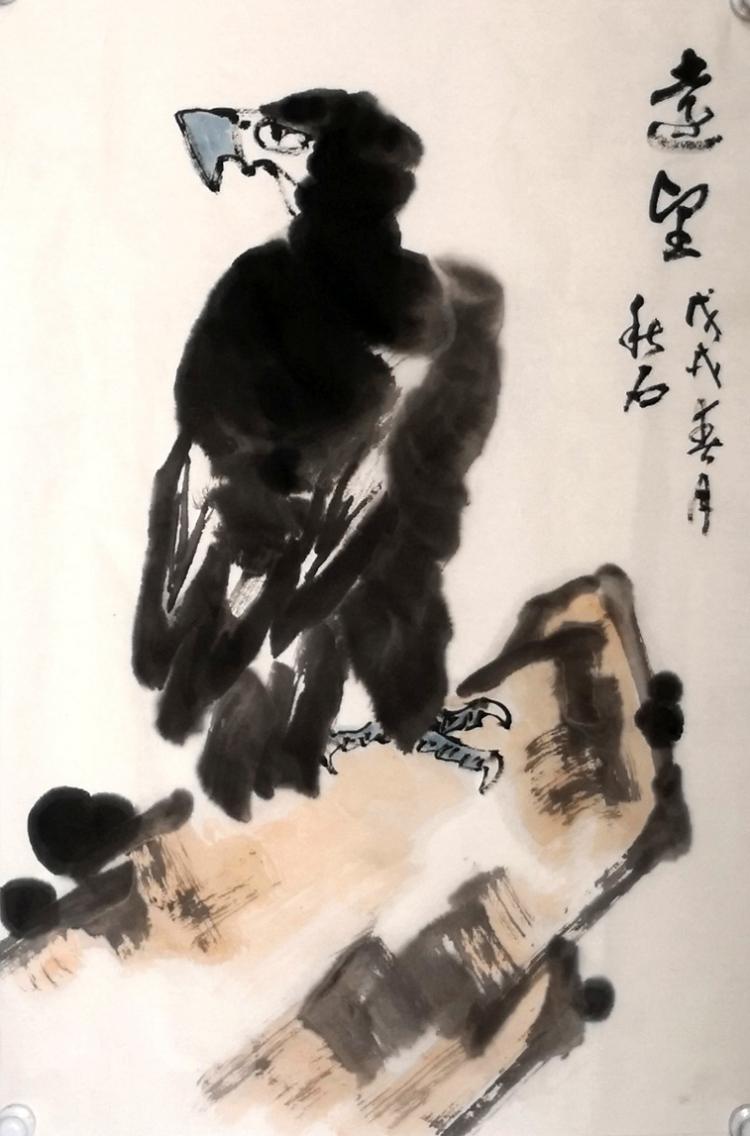 遠望
戊戌春月
秋石